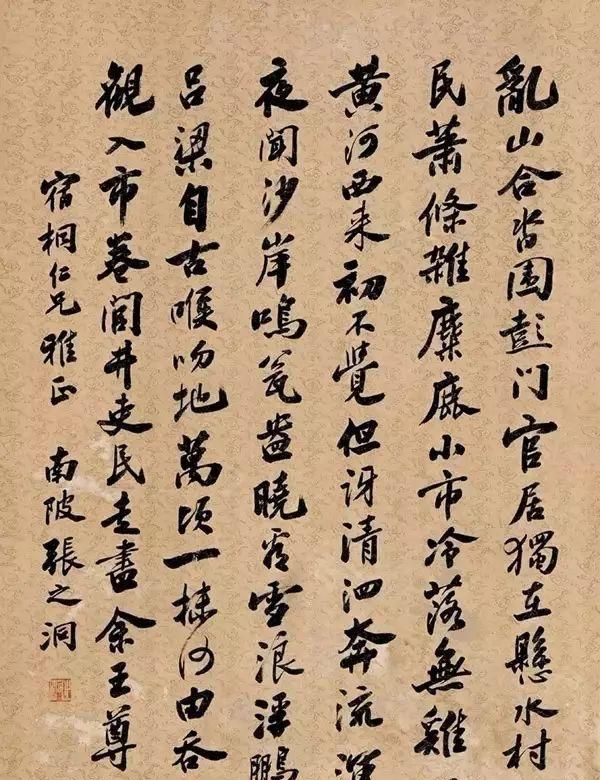 亂山合沓圍彭门官居獨在懸水村
民蕭條雜麋鹿小市冷落無雞
黄河西来初不覺但訝清泗奔流渾
夜闻沙岸鳴瓮盎曉看雪浪浮鵬
吕梁自古喉吻地萬頃一抹何由吞
觀入市卷閭井吏民走盡余王尊
宿桐仁兄雅正 南陂張之洞